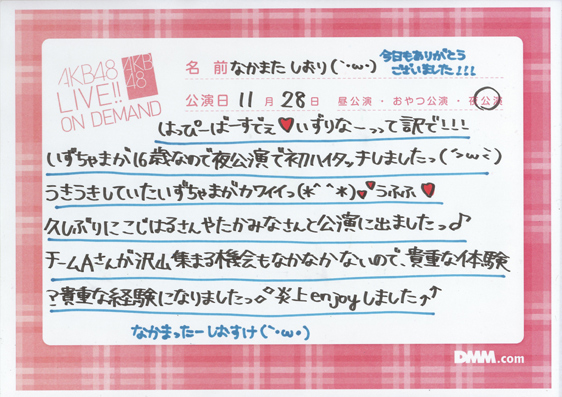 AKB48
LIVE!!
ON DEMAND
AKB
48
名前 なかまた しおり(`･ω･)
今日もありがとう
ございました!!!
公演日 11月28日 昼公演・おやつ公演・夜公演
はっぴーばーすでぇ♥いずりなーっって訳で!!!
いずちゃまが16歳なので夜公演で初ハイタッチしましたっ(
うきうきしていたいずちゃまがカワイイっ(*^^*)💕うふふ♥
久しぶりにこじはるさんやたかみなさんと公演に出ましたっ♪
チームAさんが沢山集まる機会もなかなかないので、貴重な体験
?貴重な経験になりましたっ♪炎上enjoyしました↑↑
なかまったーしおすけ(`･ω･)
DMM.com